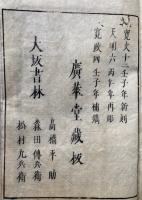 寛文十二壬子年新刻
天明六丙午年再彫
寛政四壬子年補鐫
廣華堂藏板
大坂書林
高橋平助
森田傳兵衛
松村九兵衛